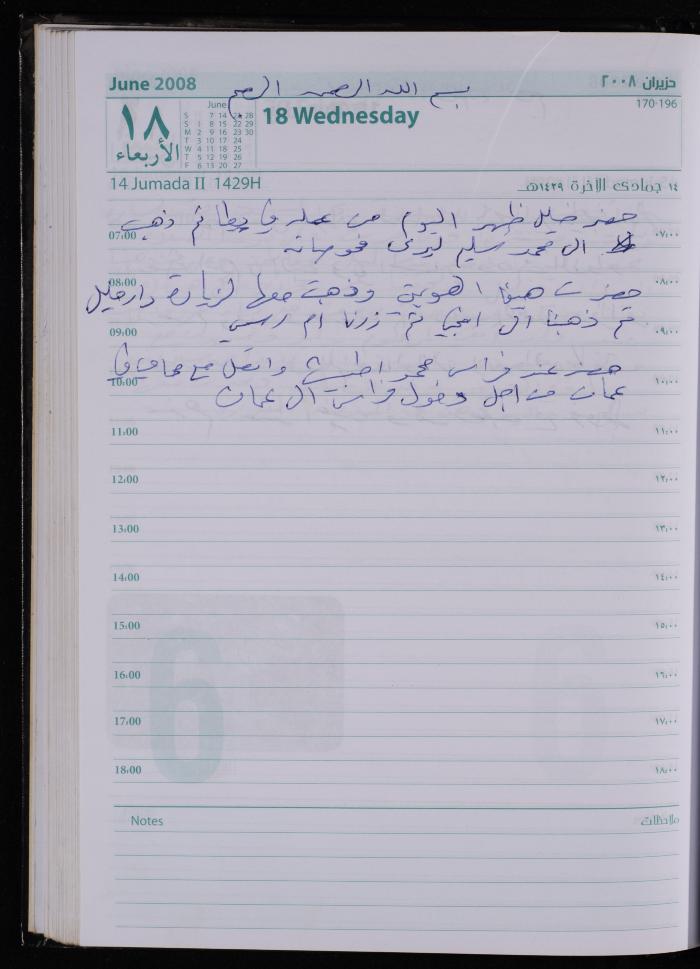 June 2008
حزيران ٢٠٠٨
بسم الله الرحمن الرحيم
170-196
١٨
الأربعاء
June
S 7 14 21 28
S 1 8 15 22 29
M 2 9 16 23 30
T 3 10 17 24
W 4 11 18 25
T 5 12 19 26
F 6 13 20 27
18 Wednesday
14 Jumada II 1429H
١٤ جمادى الآخرة ١٤٢٩هـ
حضر خليل ظهر اليوم من عمله في يطا ثم ذهب
07:00 ٠٧:٠٠
الى محمد سليم ليرى فحوصاته
08:00 ٠٨:٠٠
حضرت هيفا الهويني وذهبت معها لزيارة دار خليل
ثم ذهبنا الى ثم زرنا ام
09:00 ٠٩:٠٠
حضر عند فراس محمود واتصل مع محامي في
10:00 ١٠:٠٠
عمان من اجل دخول فراس الى عمان
11:00 ١١:٠٠
12:00 ١٢:٠٠
13:00 ١٣:٠٠
14:00 ١٤:٠٠
15:00 ١٥:٠٠
16:00 ١٦:٠٠
17:00 ١٧:٠٠
18:00 ١٨:٠٠
6
Notes ملاحظات